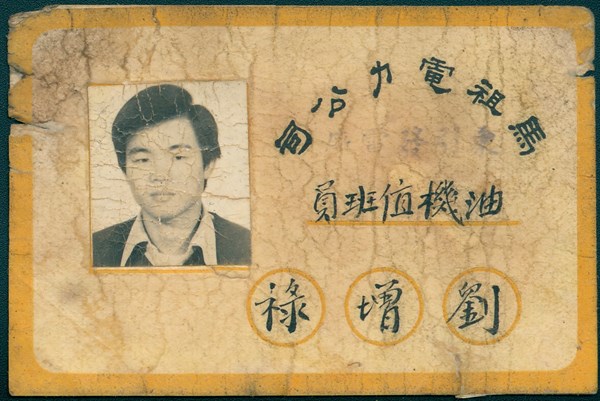 馬祖電力公司
油機值班員
劉增祿